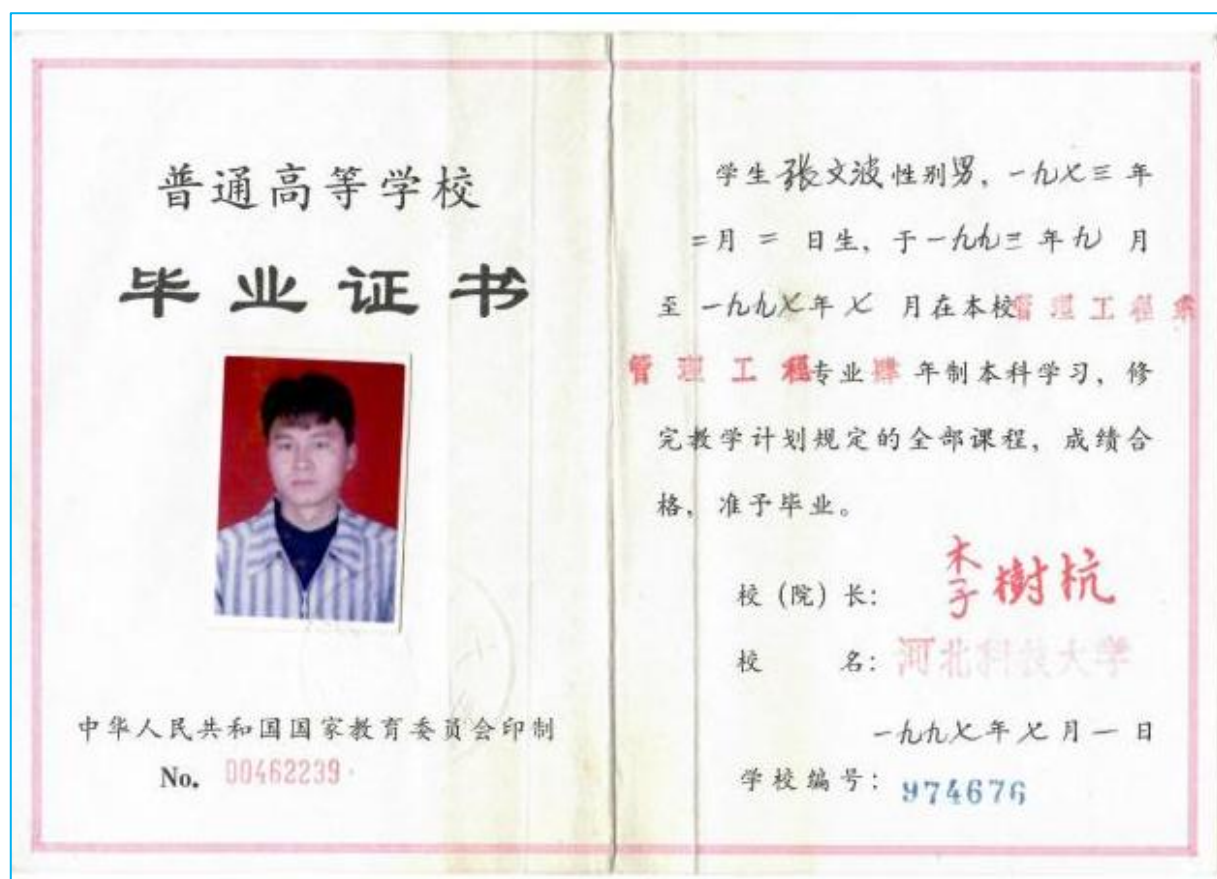 普通高等学校
毕业证书
中华人民共和国国家教育委员会印制
No. 00462239
学生张文波性别男，一九七三年
二月二日生，于一九九三年九月
至一九九七年七月在本校管理工程系
管理工程专业肆年制本科学习，修
完教学计划规定的全部课程，成绩合
格，准予毕业。
校（院）长：李樹杭
校名：河北科技大学
一九九七年七月一日
学校编号：974676